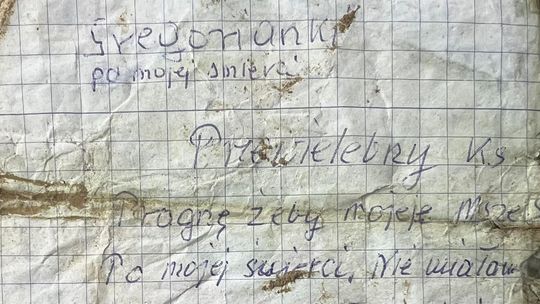 Gregorianki
po mojej śmierci
Przewielebny Ks
Pragnę żeby mojeje Msze
Po mojej śmierci, Nie miałam